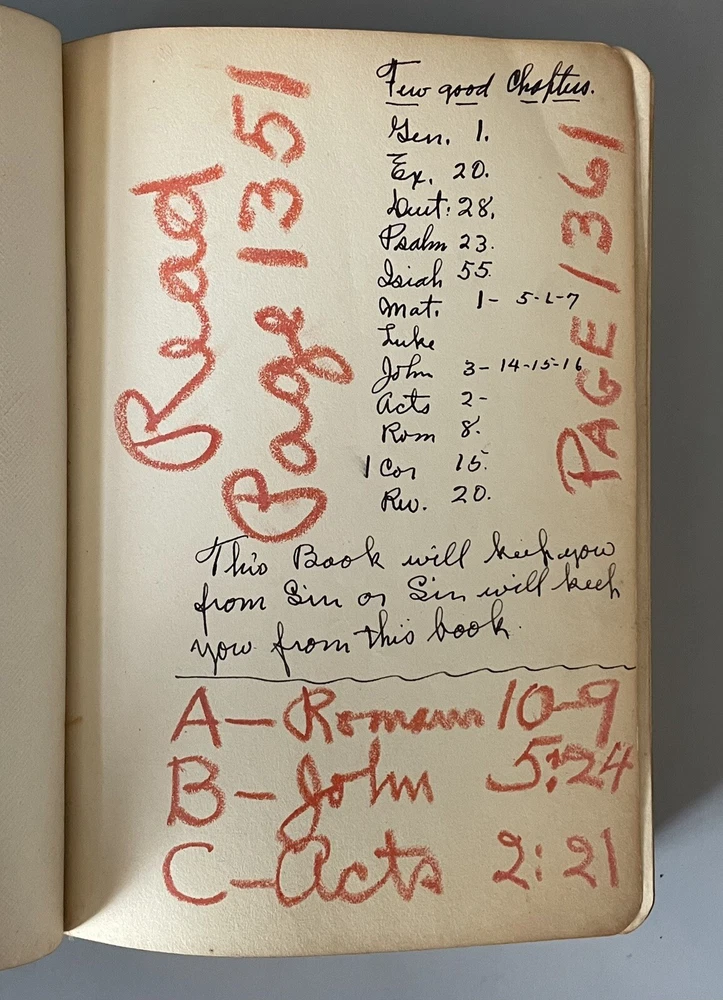 Read
Page 1351
Few good Chapters.
Gen. 1.
Ex. 20.
Dut: 28.
Psalm 23.
Isiah 55.
Mat. 1- 5-6-7
Luke
John 3- 14-15-16
Acts 2-
Rom 8.
1 Cor 15.
Rev. 20.
PAGE 1361
This Book will keep you
from Sin or Sin will keep
you from this book.
A- Romans 10-9
B- John 5:24
C- Acts 2:21